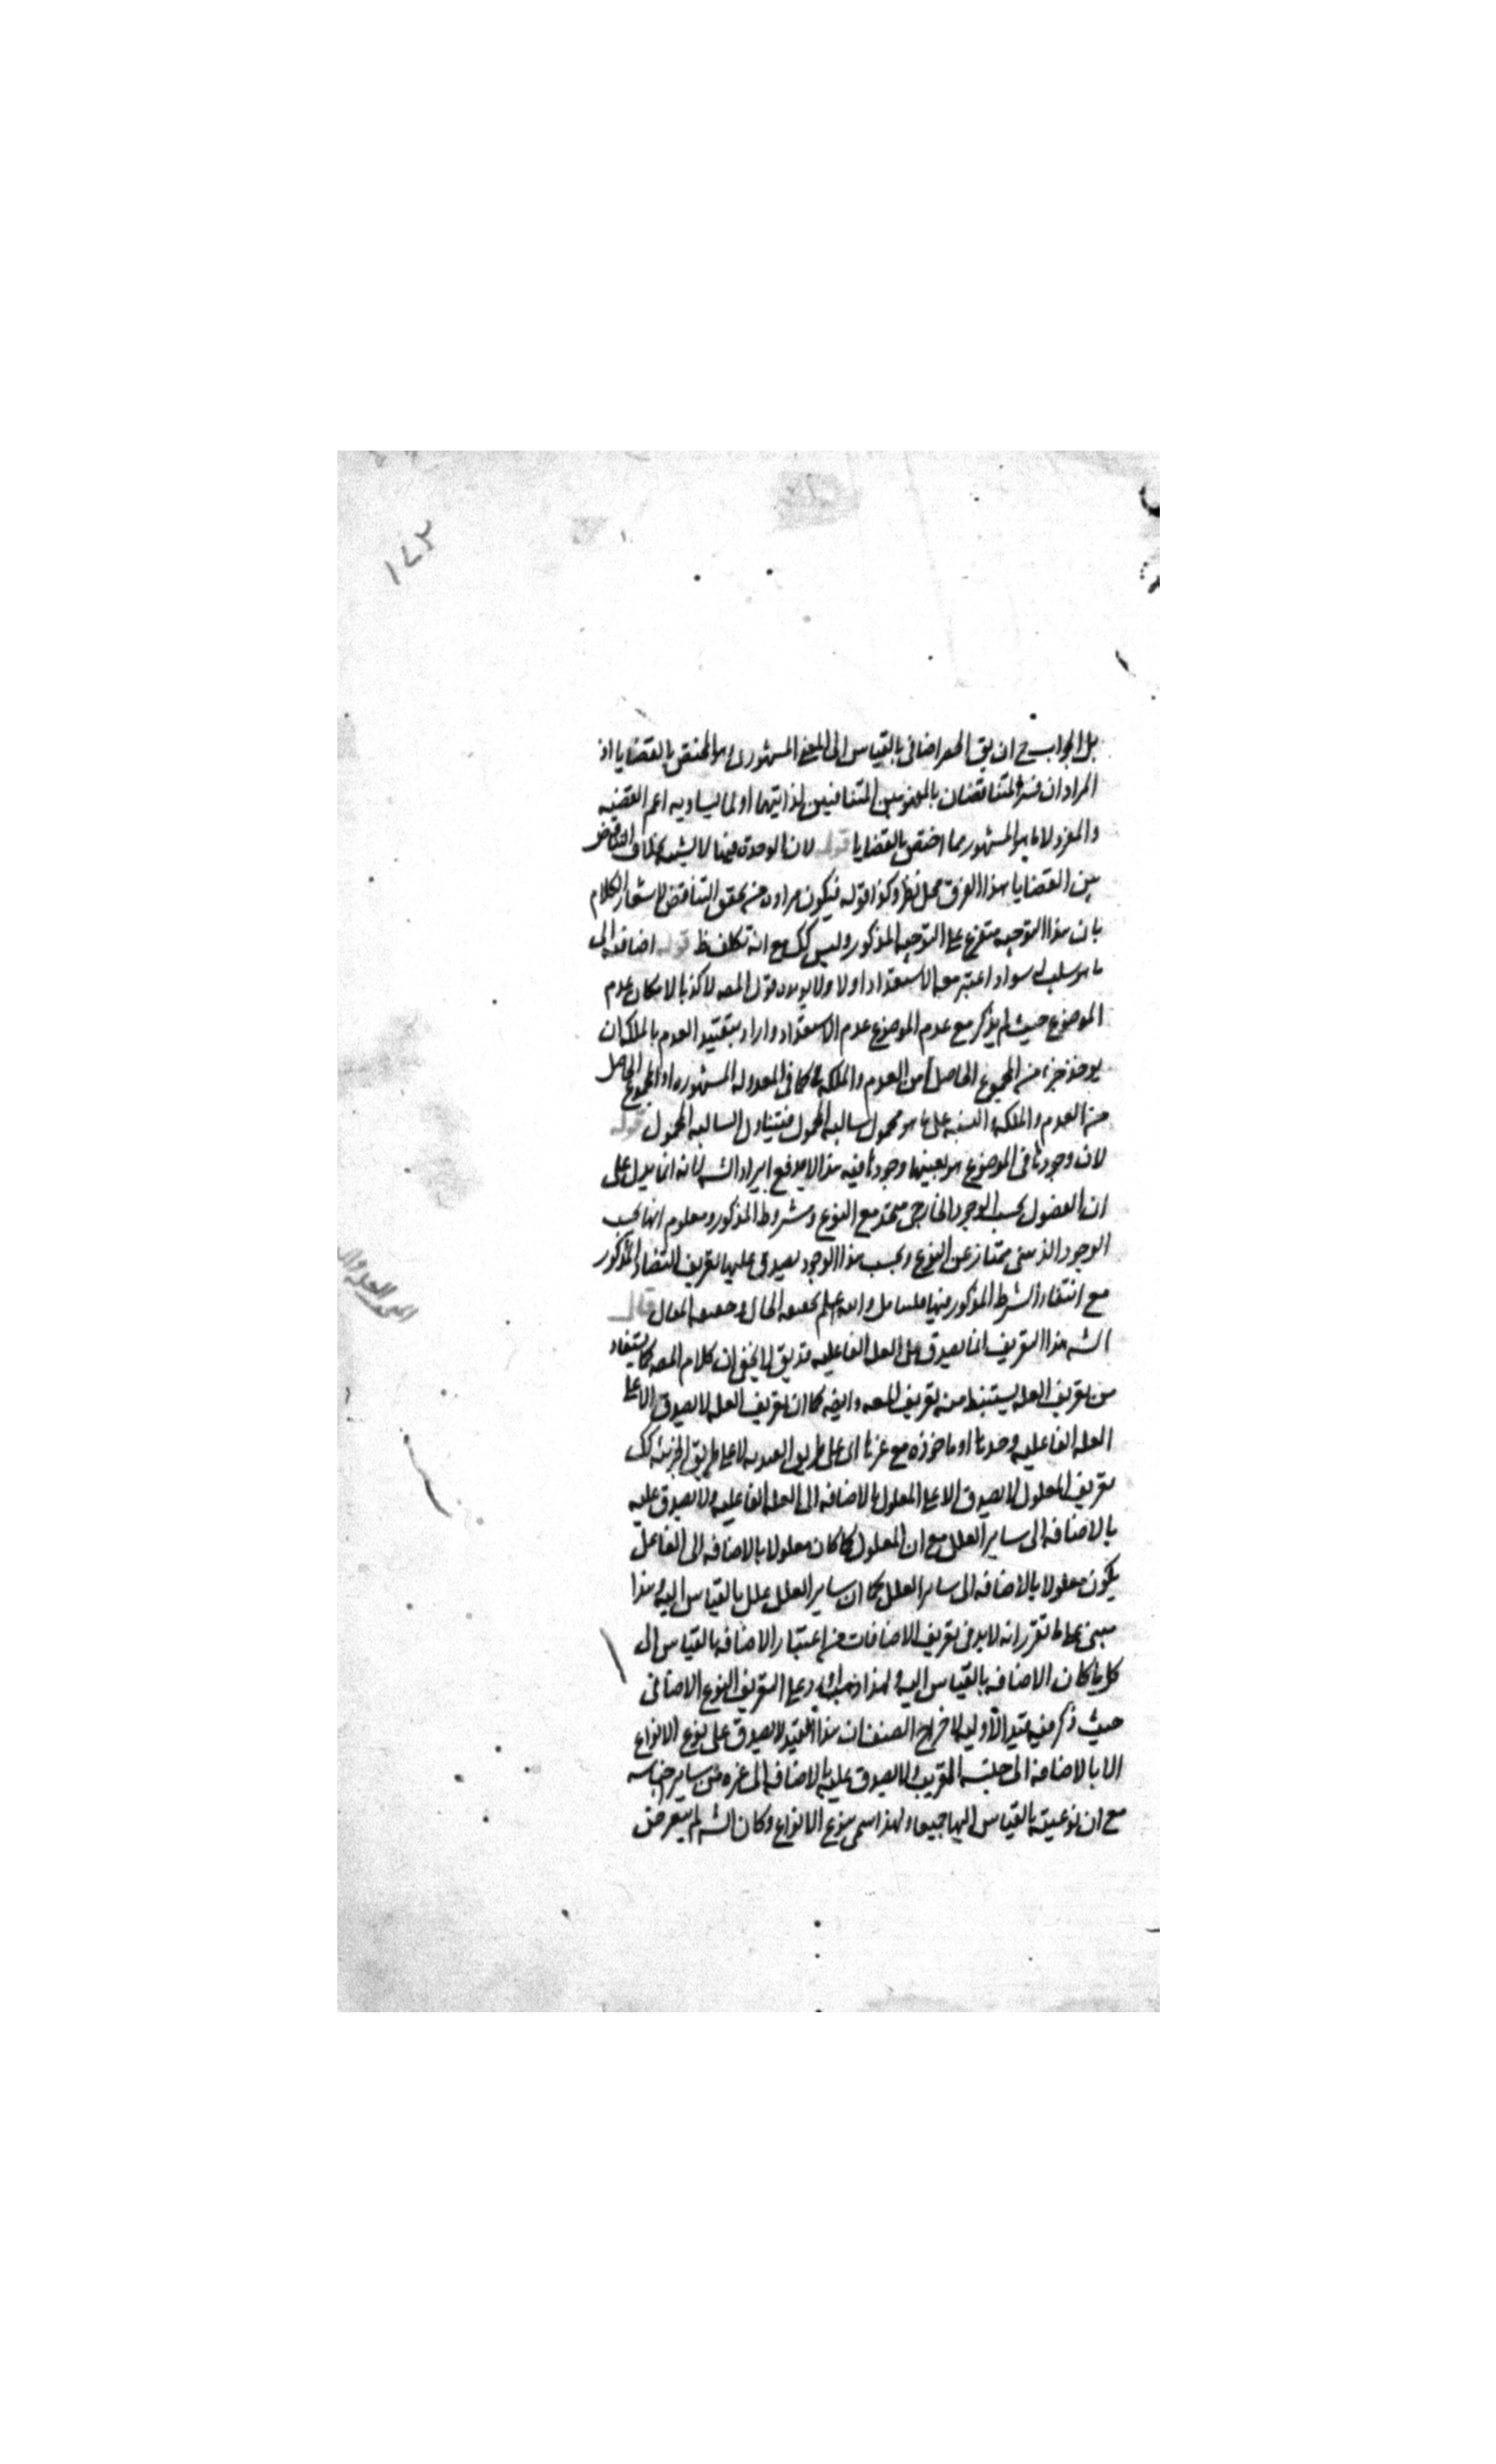 ١٤٣
بل الجواب ح ان يق الحصر اضافى بالقياس الى المعنى المشهورى وهو المختص بالقضايا اذ
المراد ان فسر المتناقضان بالمفهومين المتنافيين لذاتيهما او لما يساويه اعم القضيه
والمفرد لا ما هو المشهور مما اختص بالقضايا قوله لان الوحدة فيها لا يشبه بخلاف التناقض
بين القضايا هذا الفرق محل نظر وكذا قوله فيكون مراده من تحقق التناقض لاشعار الكلام
بان هذا التوجيه متفرع على التوجيه المذكور وليس كك مع انه تكلف ظ قوله اضافه الى
ما هو سلب له سواء اعتبر معه الاستعداد اولا ولا قول المصه لا كذبا لامكان عدم
الموضوع حيث لم يذكر مع عدم الموضوع عدم الاستعداد واراد بتقييد العدم بالملكه ان
يوخذ جزء من المجموع الحاصل من العدم والملكه كما فى المعدوله المشهوره او المجموع الحاصل
من العدم والملكه والنسبه على ما هو محمول سالبه المحمول فيتناول السالبه المحمول قوله
لان وجودها فى الموضوع هو بعينها وجودها فيه هذا لا يدفع ايراد الشه لانه انما يدل على
ان الفصول بحسب الوجود الخارجى متحد مع النوع ومشروط المذكور ومعلوم انها بحسب
الوجود الذهنى ممتاز عن النوع وبحسب هذا الوجود يصدق عليها تعريف التضاد المذكور
مع انتفاء الشرط المذكور فيها فليتامل والله اعلم بحقيقه الحال وحقيقه المقال قال
الشه هذا التعريف انما يصدق على العله الفاعليه قد يق لا يخفى ان كلام المصه كما يستفاد
من تعريف العله يستنبط منه تعريف المعه وايضه كما ان تعريف العله لا يصدق الا على
العله الفاعليه وحدها او ماخوذه مع غيرها اى على طريق القيديه لا على طريق الجزئيه كك
تعريف المعلول لا يصدق الا على المعلول بالاضافه الى العله الفاعليه ولا يصدق عليه
بالاضافه الى ساير العلل مع ان المعلول كما كان معلولا بالاضافه الى الفاعل
يكون معلولا بالاضافه الى ساير العلل كما ان ساير العلل علل بالقياس اليه وهذا
مبنى على ما تقرر انه لا بد فى تعريف الاضافات من اعتبار الاضافه بالقياس الى
كل ما كان الاضافه بالقياس اليه ولهذا على التعريف النوع الاضافى
حيث ذكر فيه قيد الاوليه لاخراج الصنف ان هذا القيد لا يصدق على نوع الانواع
الا بالاضافه الى جنسه القريب ولا يصدق عليه بالاضافه الى غيره من ساير اجناسه
مع ان نوعيته بالقياس اليها جميعا ولهذا سمى بنوع الانواع وكان الشه لم يتعرض